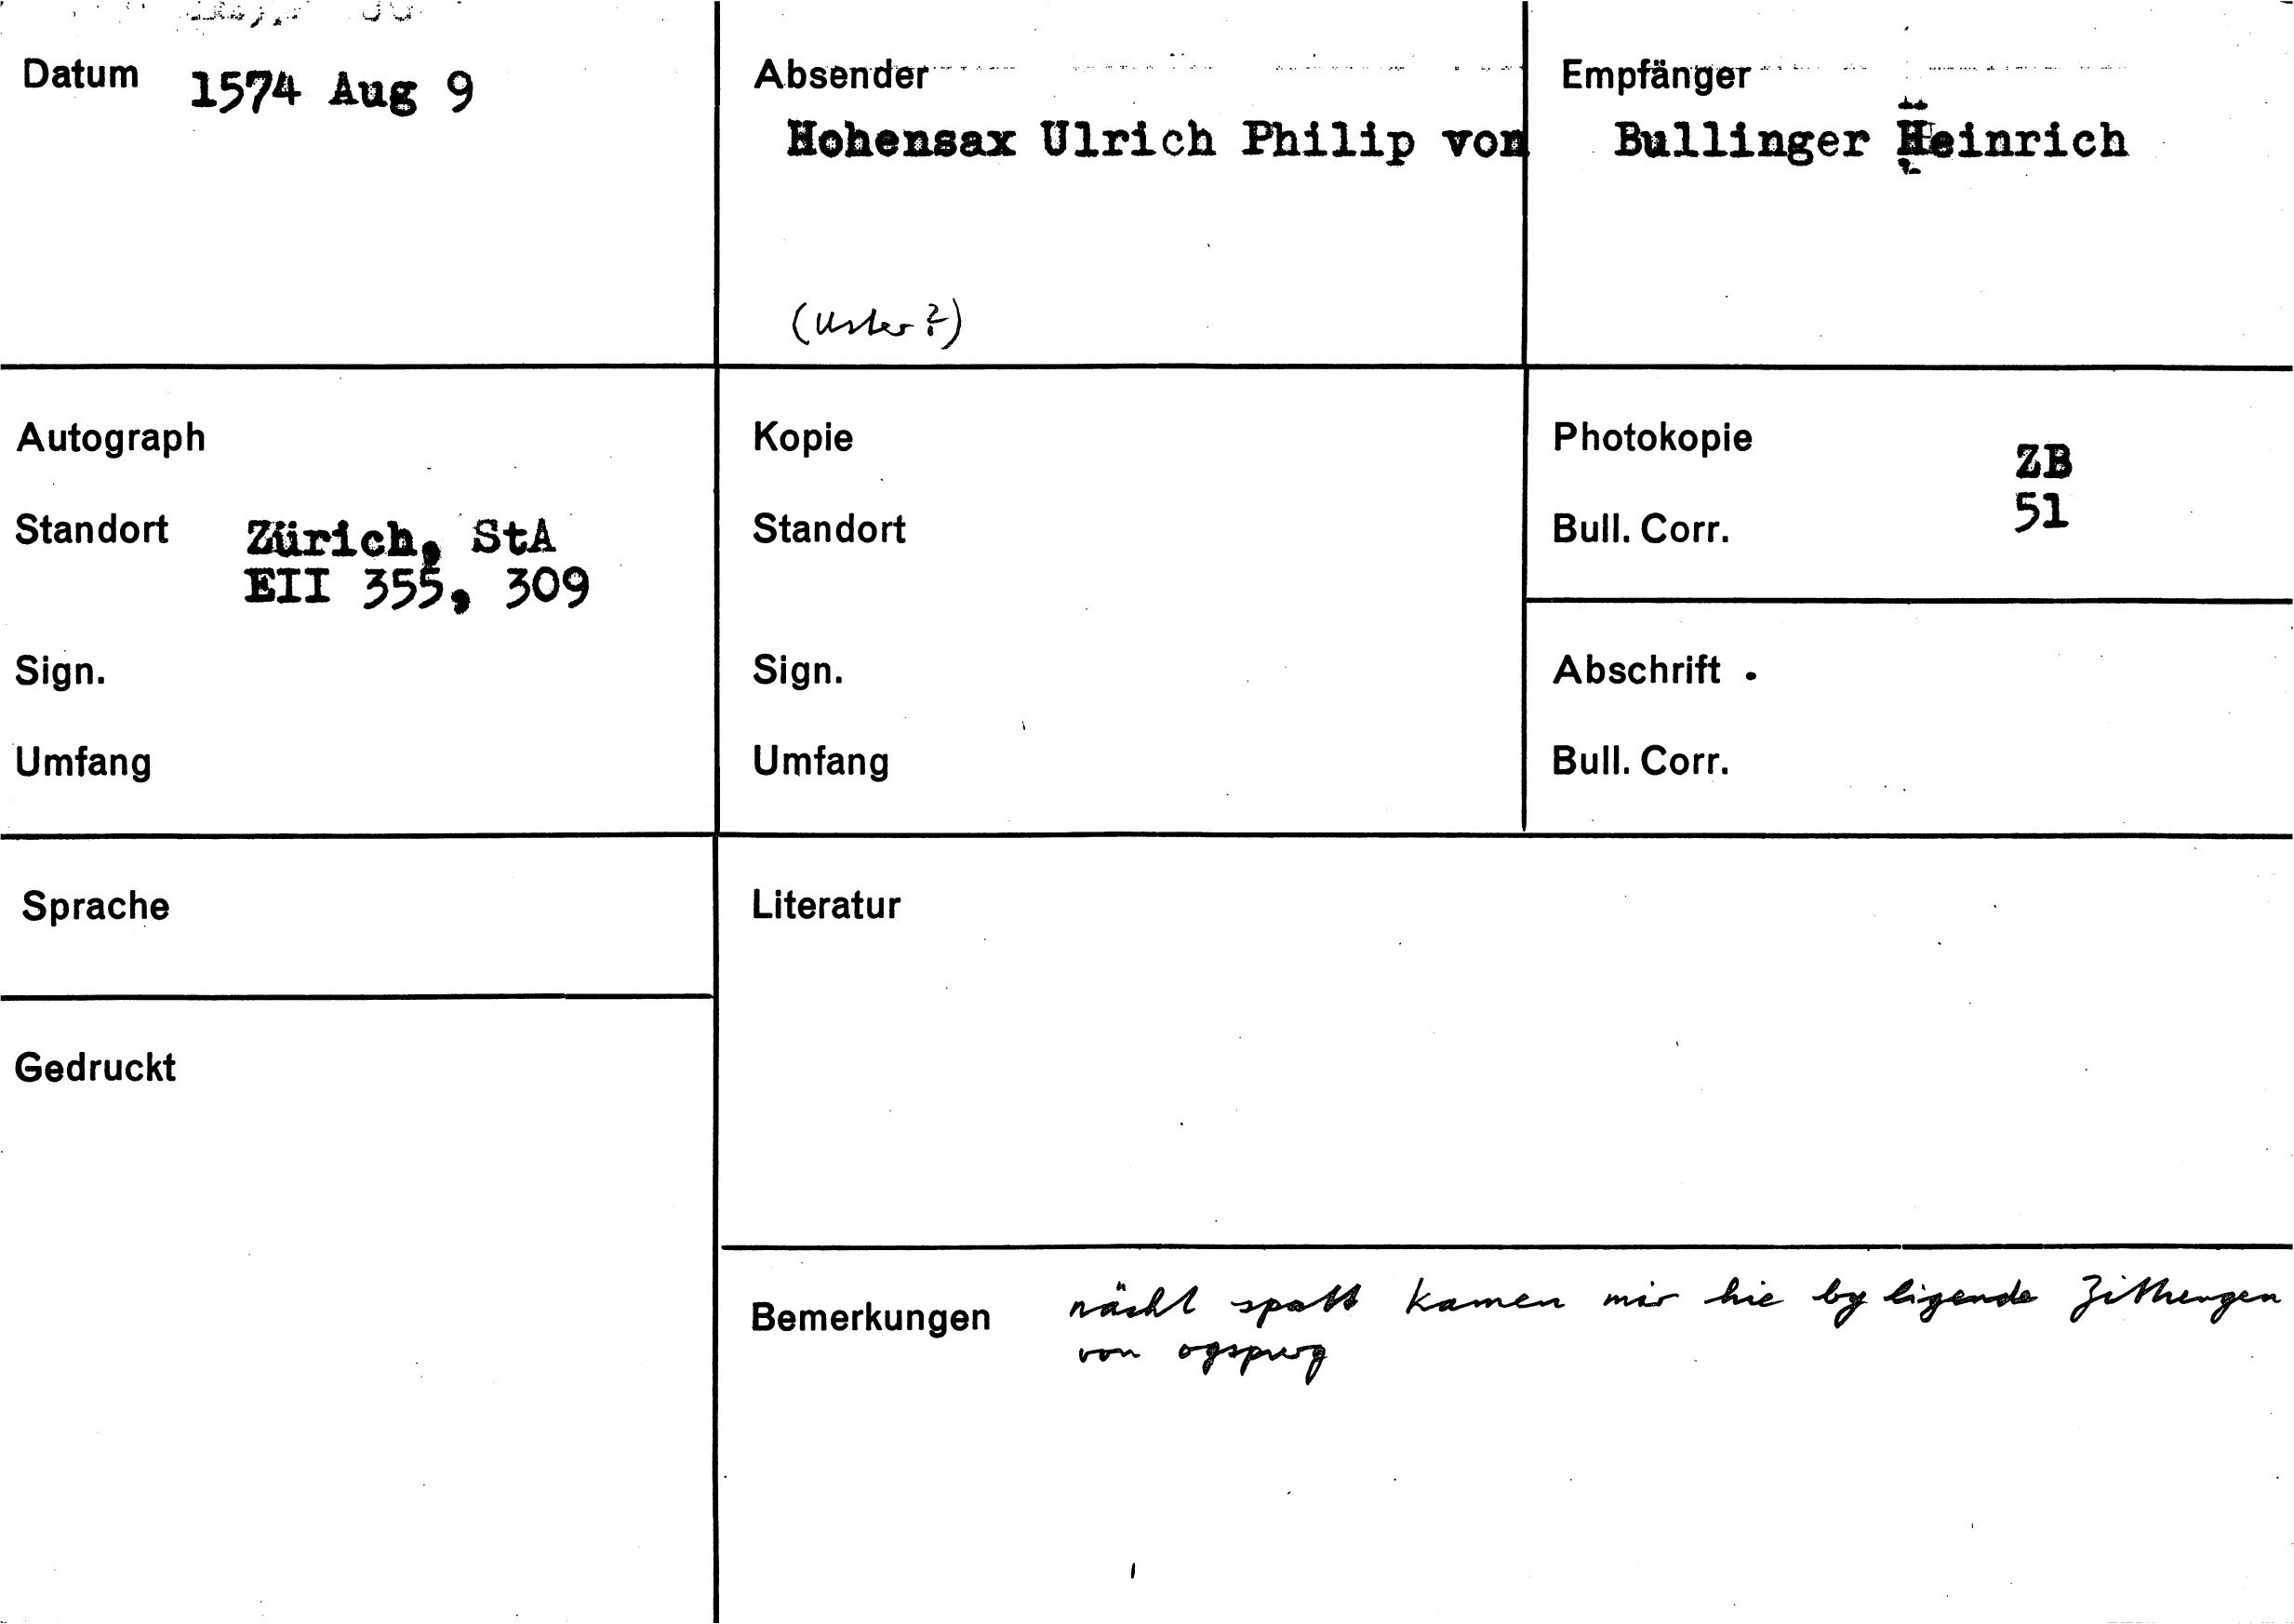 Datum 1574 Aug 9
Absender
Hohensax Ulrich Philip von
(Uster?)
Empfänger
Bullinger Heinrich
Autograph
Standort Zürich, StA
EII 355, 309
Sign.
Umfang
Kopie
Standort
Sign.
Umfang
Photokopie ZB
Bull. Corr. 51
Abschrift .
Bull. Corr.
Sprache
Gedruckt
Literatur
Bemerkungen nächt spatt kamen mir hie by ligende Zithungen
von ogspurg